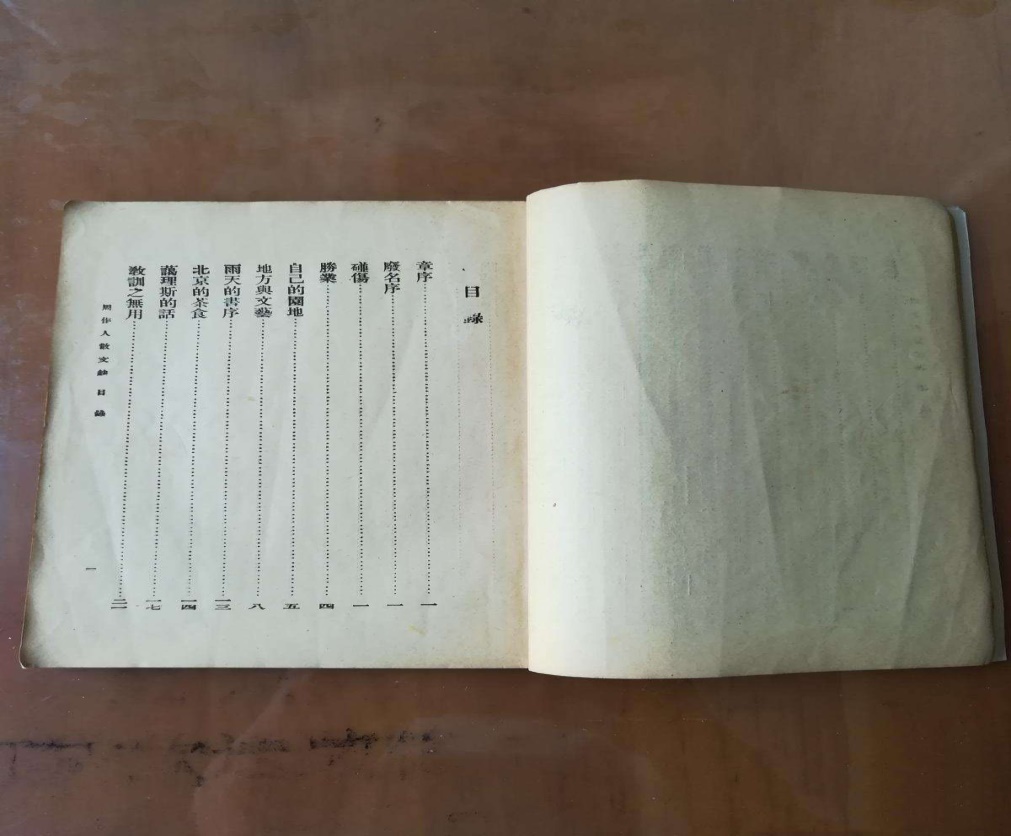 目錄
章序⋯⋯一
廢名序⋯⋯一
碰傷⋯⋯一
勝業⋯⋯四
自己的園地⋯⋯五
地方與文藝⋯⋯八
雨天的書序⋯⋯一三
北京的茶食⋯⋯一四
藹理斯的話⋯⋯一七
教訓之無用⋯⋯二一
周作人散文鈔 目錄
一